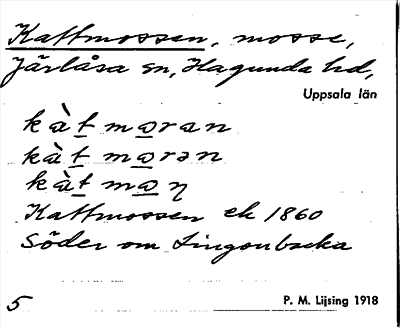 Kattmossen, mosse,
Järlåsa sn, Hagunda hd,
Uppsala län
kàt maran
kàt marən
kàt maη
Kattmossen ek 1860
Söder om Lingonbacka
5 P. M. Lijsing 1918